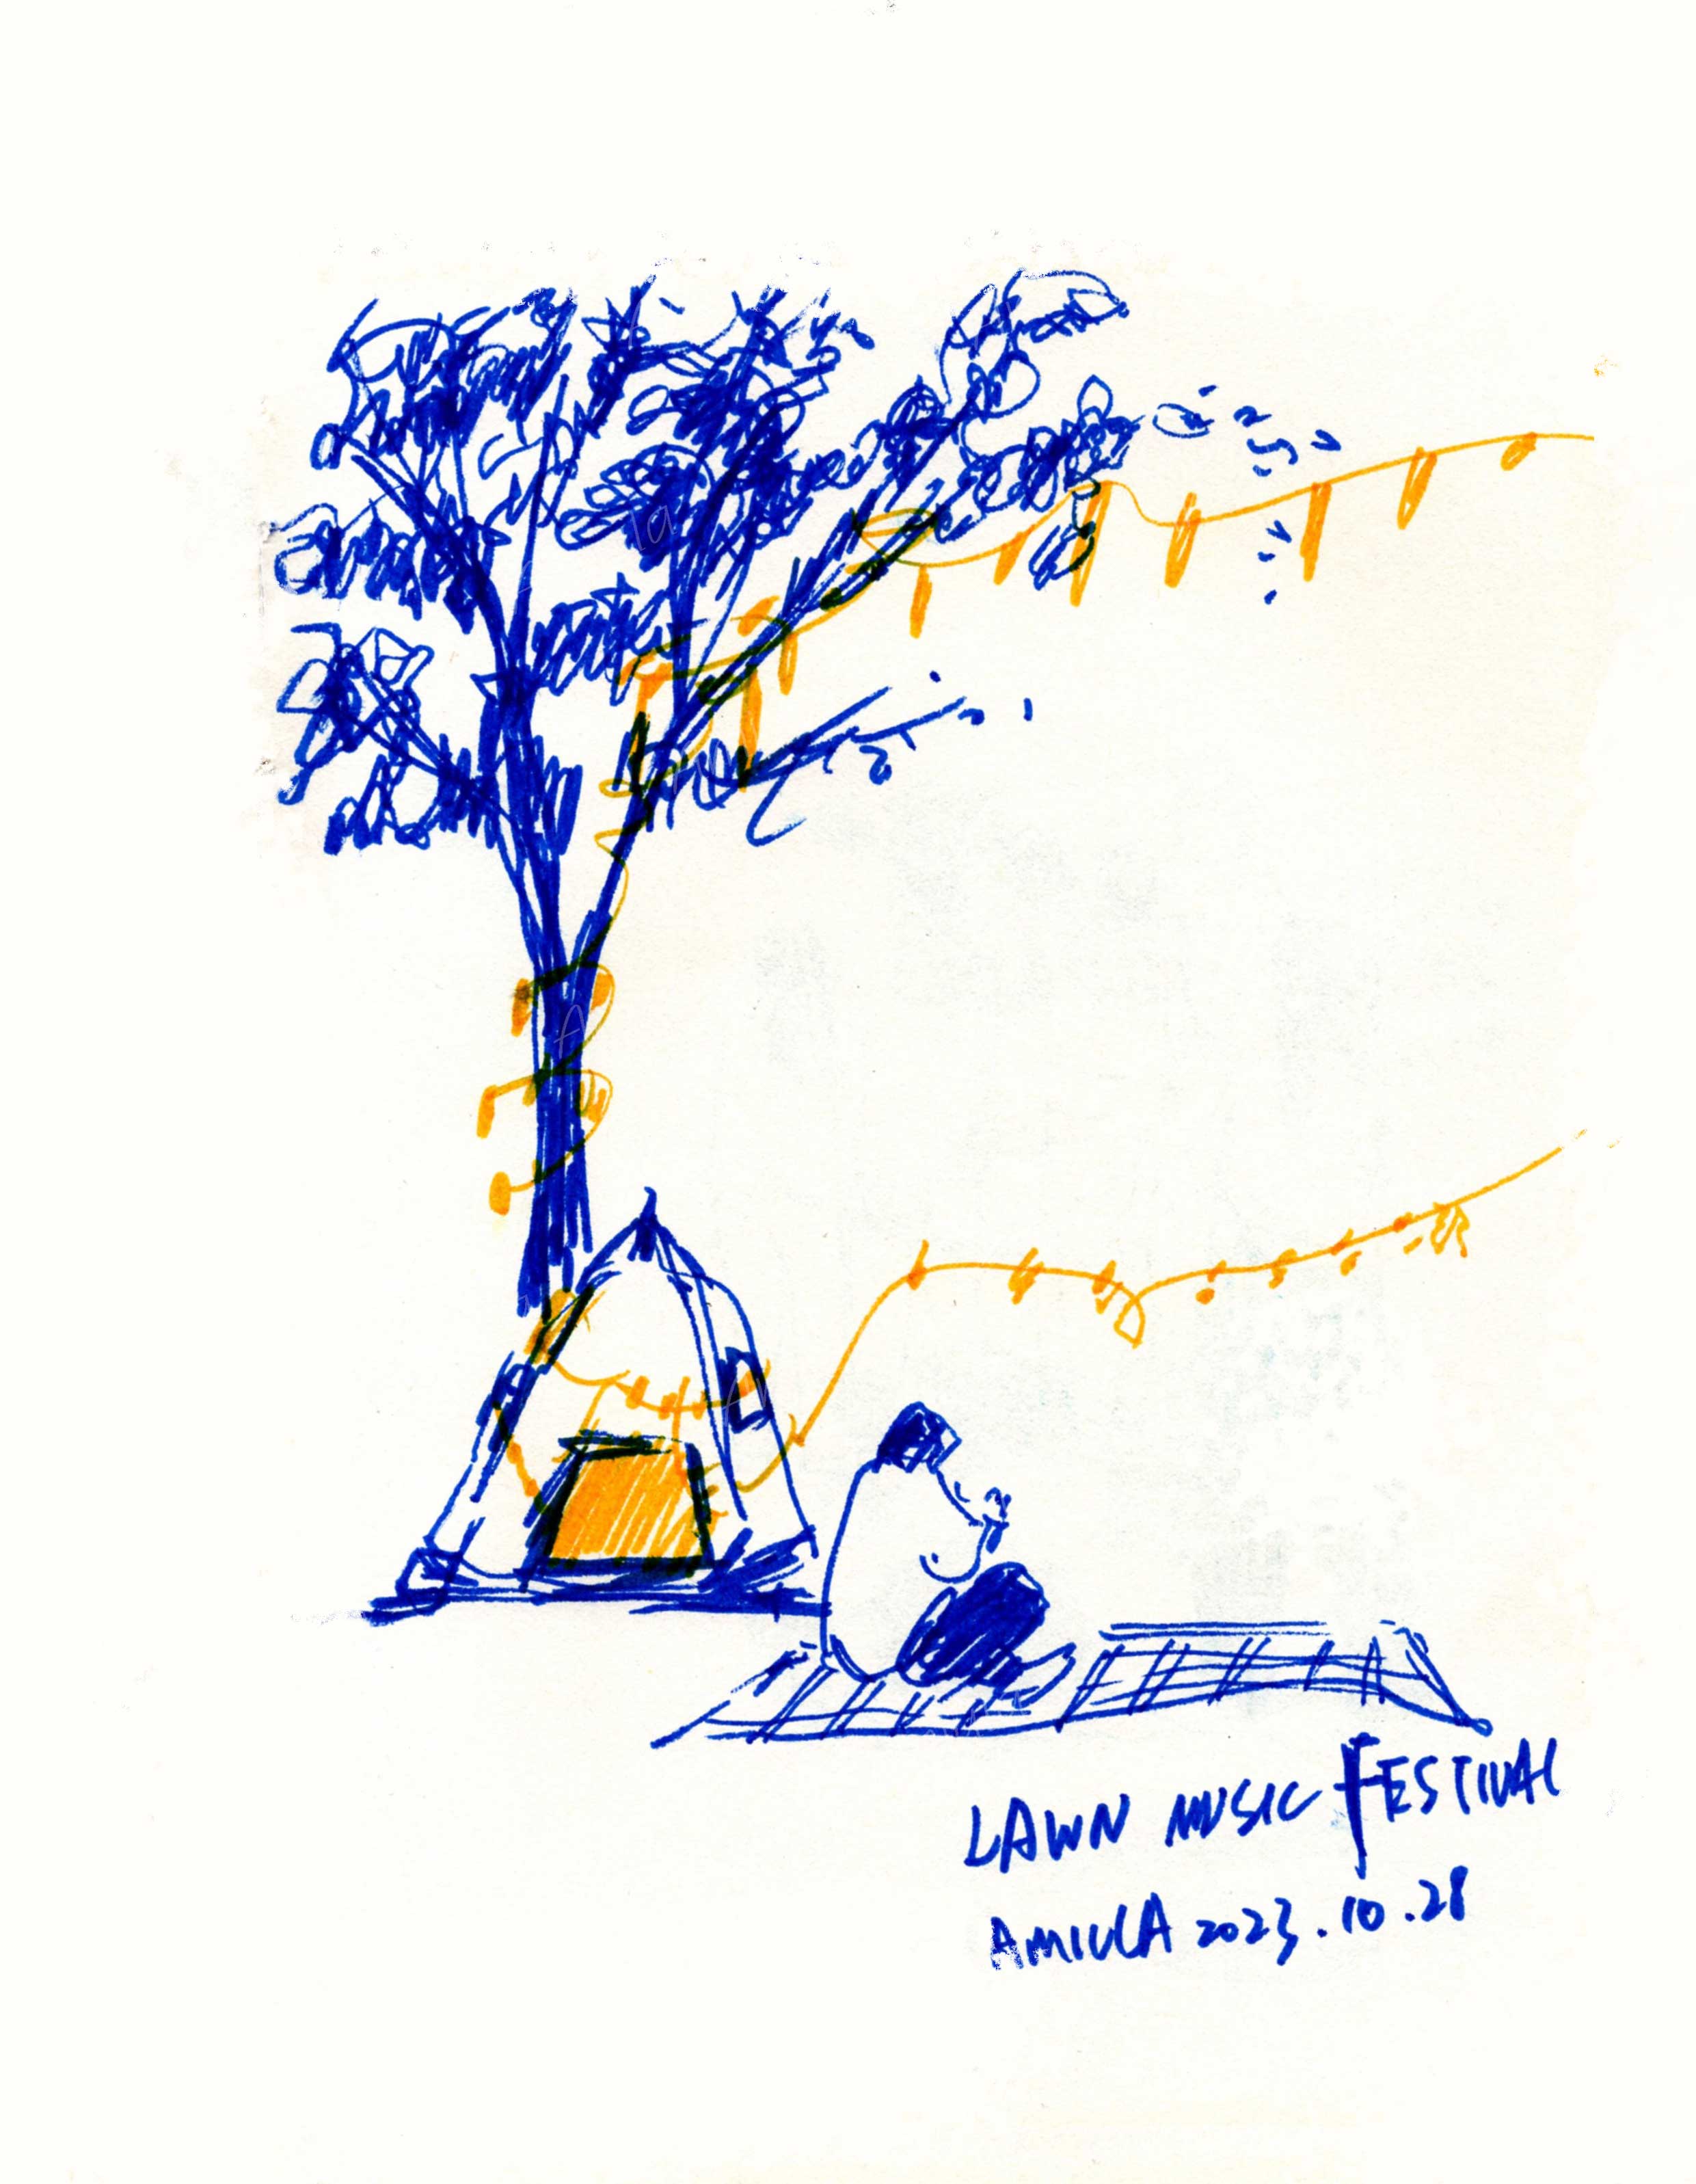 LAWN MUSIC FESTIVAL
AMIULA 2023.10.28